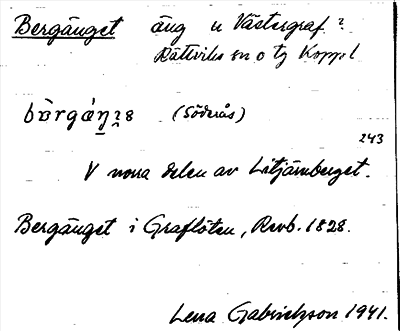 Bergänget äng u Västergraf?
Rättviks sn o tg Koppl
(Söderås)
243
V norra delen av Litjärnberget.
Bergänget i Graflöten, Revb. 1828.
Lena Gabrielsson 1941.